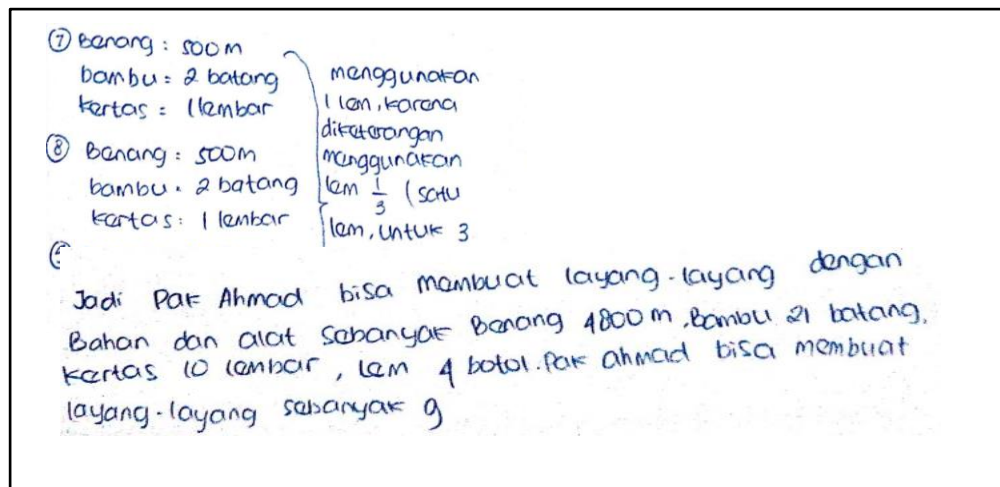 ⑦ Benang : 500m
bambu : 2 batang
kertas : 1 lembar
⑧ Benang : 500m
bambu : 2 batang
kertas : 1 lembar
menggunakan
1 lem, karena
diketerangan
menggunakan
lem 1/3 (satu
lem, untuk 3
Jadi Pak Ahmad bisa membuat layang-layang dengan
Bahan dan alat sebanyak Benang 4800m, Bambu 21 batang,
kertas 10 lembar, Lem 4 botol. Pak ahmad bisa membuat
layang-layang sebanyak 9